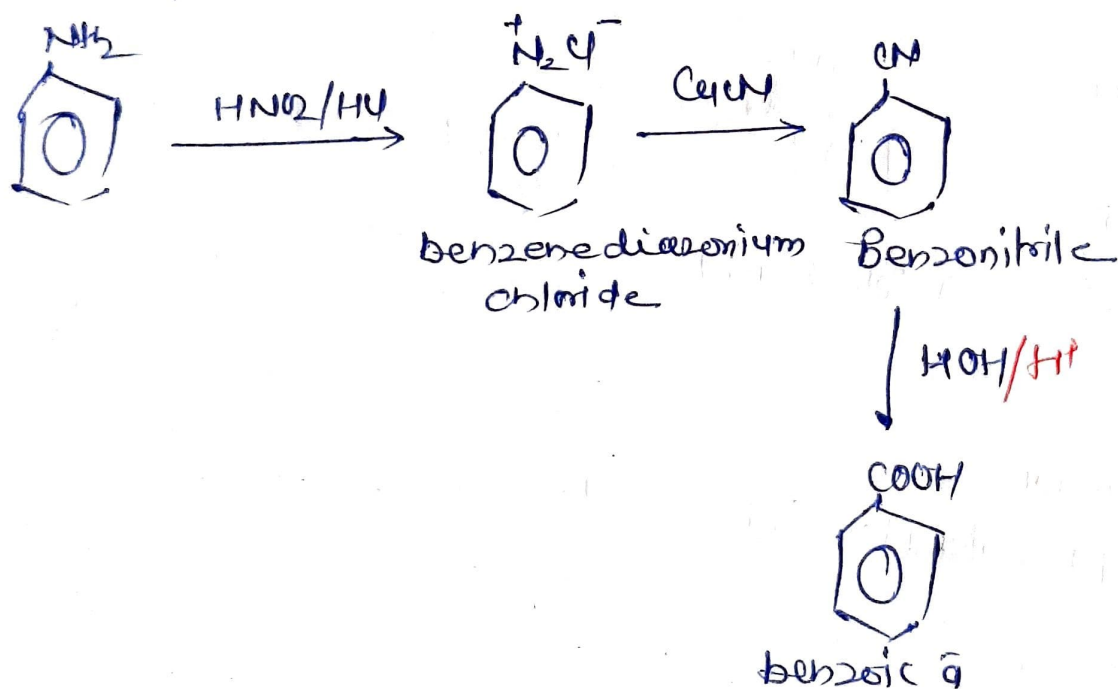 NH2
HNO2/HCl
+N2Cl-
CuCN
CN
benzenediazonium
chloride
Benzonitrile
HOH/H+
COOH
benzoic a